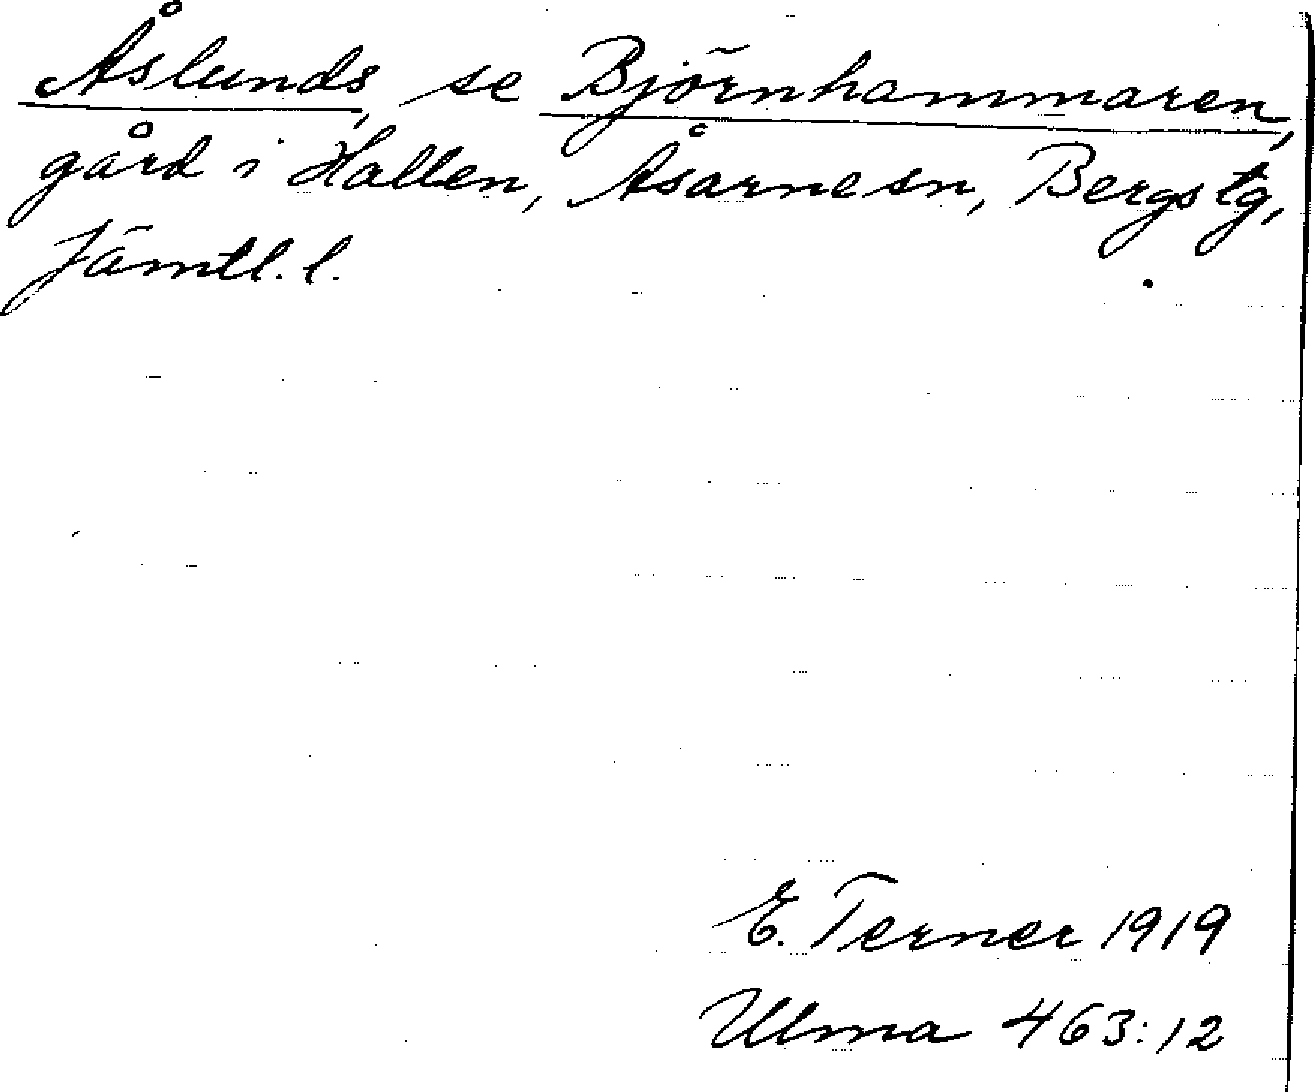 Åslunds, se Björnhammaren,
gård i Hallen, Åsarne sn, Bergs tg,
Jämtl. l.
E. Terner 1919
Ulma 463:12